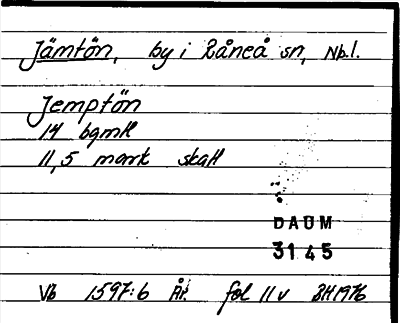 Jämtön, by i Råneå sn, Nb.l.
Jemptön
14 bgmtl
11,5 mark skatt
DAUM
3145
Vb 1597:6 År. fol 11 v BH1976